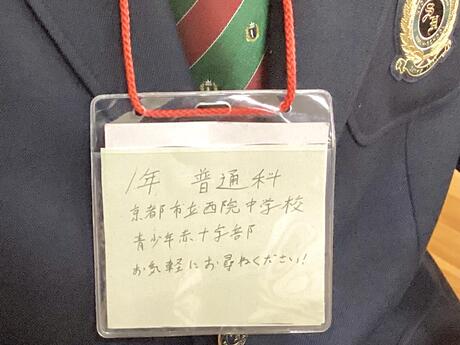 1年 普通科
京都市立西院中学校
青少年赤十字部
お気軽にお尋ねください!